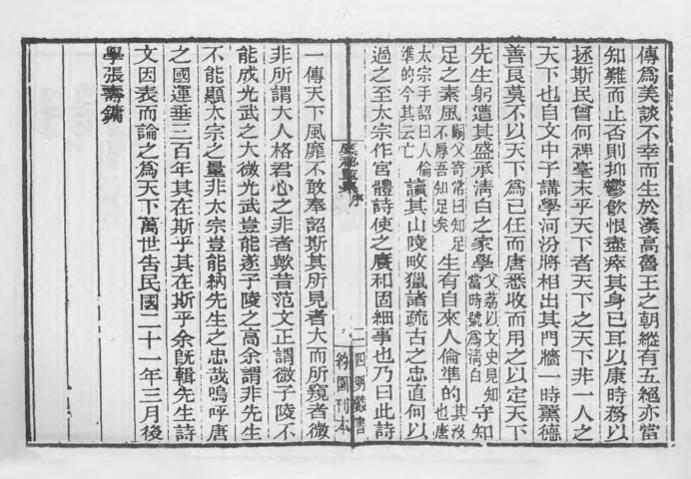 傳爲美談不幸而生於漢高魯王之朝縱有五絕亦當
知難而止否則抑鬱飮恨盡瘁其身已耳以康時務以
拯斯民曾何裨毫末乎天下者天下之天下非一人之
天下也自文中子講學河汾將相出其門牆一時薰德
善良莫不以天下爲己任而唐悉收而用之以定天下
先生躬遭其盛承淸白之家學父荔以文史見知當時號爲淸白守知
足之素風嗣父寄嘗曰知足不辱吾知足矣生有自來人倫準的其沒也唐
太宗手詔曰人倫準的今其云亡讀其山陵畋獵諸疏古之忠直何以
過之至太宗作宮體詩使之賡和固細事也乃曰此詩
序
二
四明叢書
約園刊本
一傳天下風靡不敢奉詔斯其所見者大而所窺者微
非所謂大人格君心之非者歟昔范文正謂微子陵不
能成光武之大微光武豈能遂子陵之高余謂非先生
不能顯太宗之量非太宗豈能納先生之忠哉嗚呼唐
之國運垂三百年其在斯乎其在斯乎余旣輯先生詩
文因表而論之爲天下萬世告民國二十一年三月後
學張壽鏞